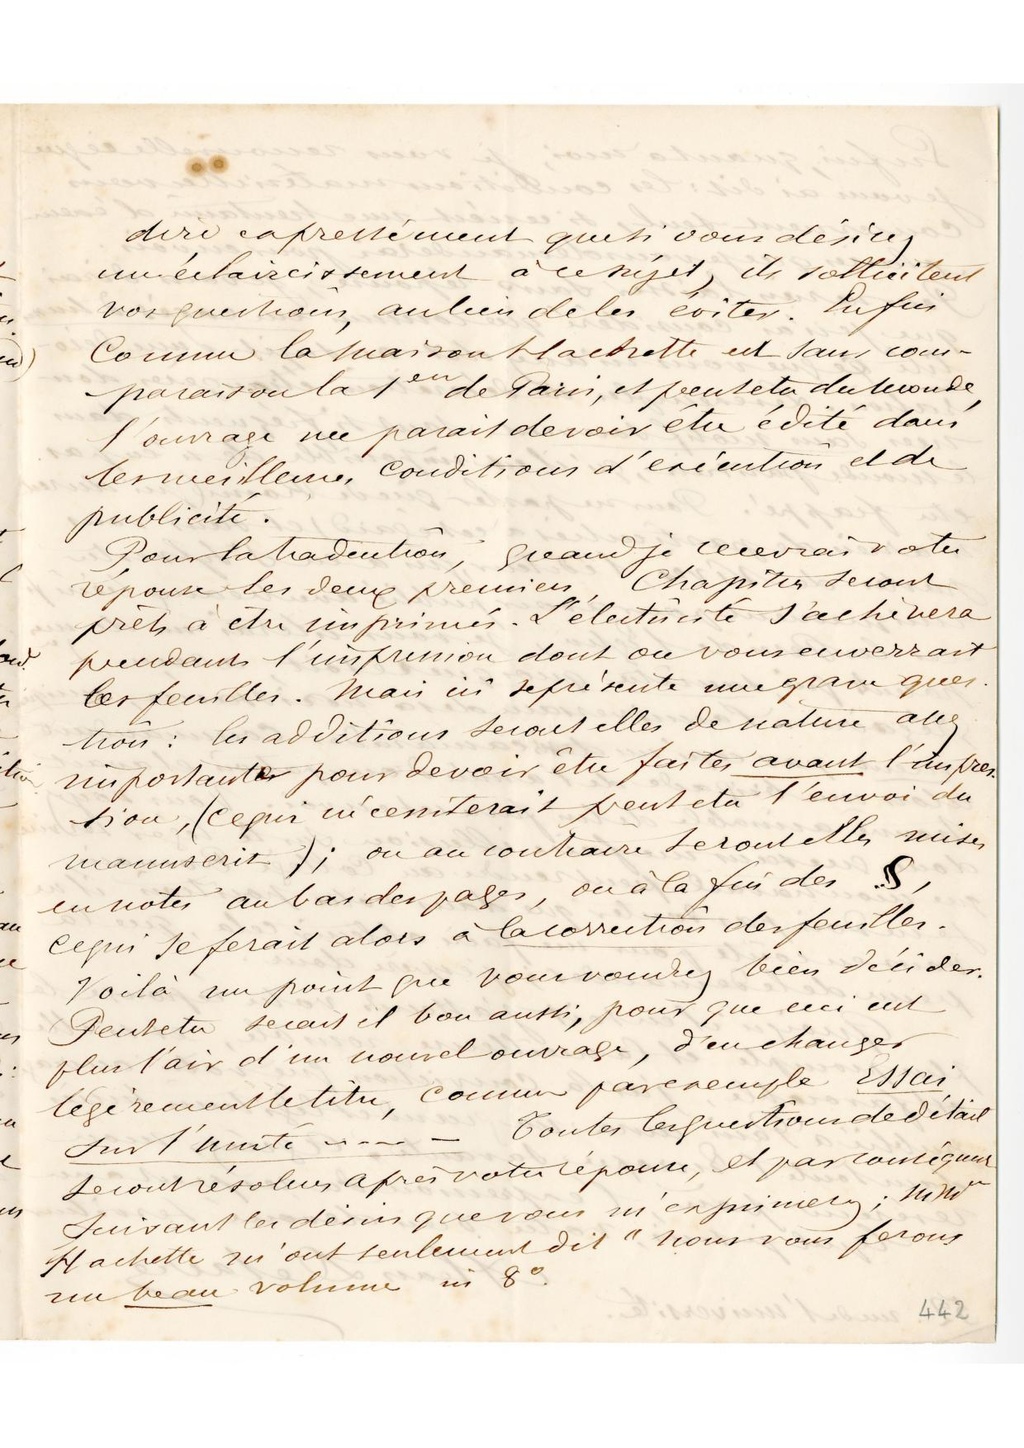 dire expressément que si vous désirez
un éclaircissement à ce sujet, ils sollicitent
vos questions, au lieu de les éviter. Enfin
Comme la maison Hachette est sans com-
paraison la 1ère de Paris, et peut etre du monde,
l'ouvrage me parait devoir être édité dans
les meilleures conditions d'exécution et de
publicité.
Pour la traduction, quand je recevrai votre
réponse les deux premiers Chapitres seront
prêts à être imprimés. L'électricité s'achèvera
pendant l'impression dont on vous enverrait
les feuilles. Mais ici se présente une grave ques-
tion : les additions seront elles de nature assez
importantes pour devoir être faites avant l'impres-
sion, (ce qui nécessiterait peut etre l'envoi du
manuscrit) ; ou au contraire seront elles mises
en notes au bas des pages, ou à la fin des §,
ce qui se ferait alors à la correction des feuilles.
Voilà un point que vous voudrez bien décider.
Peut etre serait il bon aussi, pour que ceci eut
plus l'air d'un nouvel ouvrage, d'en changer
légèrement le titre, comme par exemple Essai
sur l'unité ---- — Toutes les questions de détail
seront résolues après votre réponse, et par conséquent
suivant les désirs que vous m'exprimerez ; MM
Hachette m'ont seulement dit "nous vous ferons
un beau volume in 8°.
442